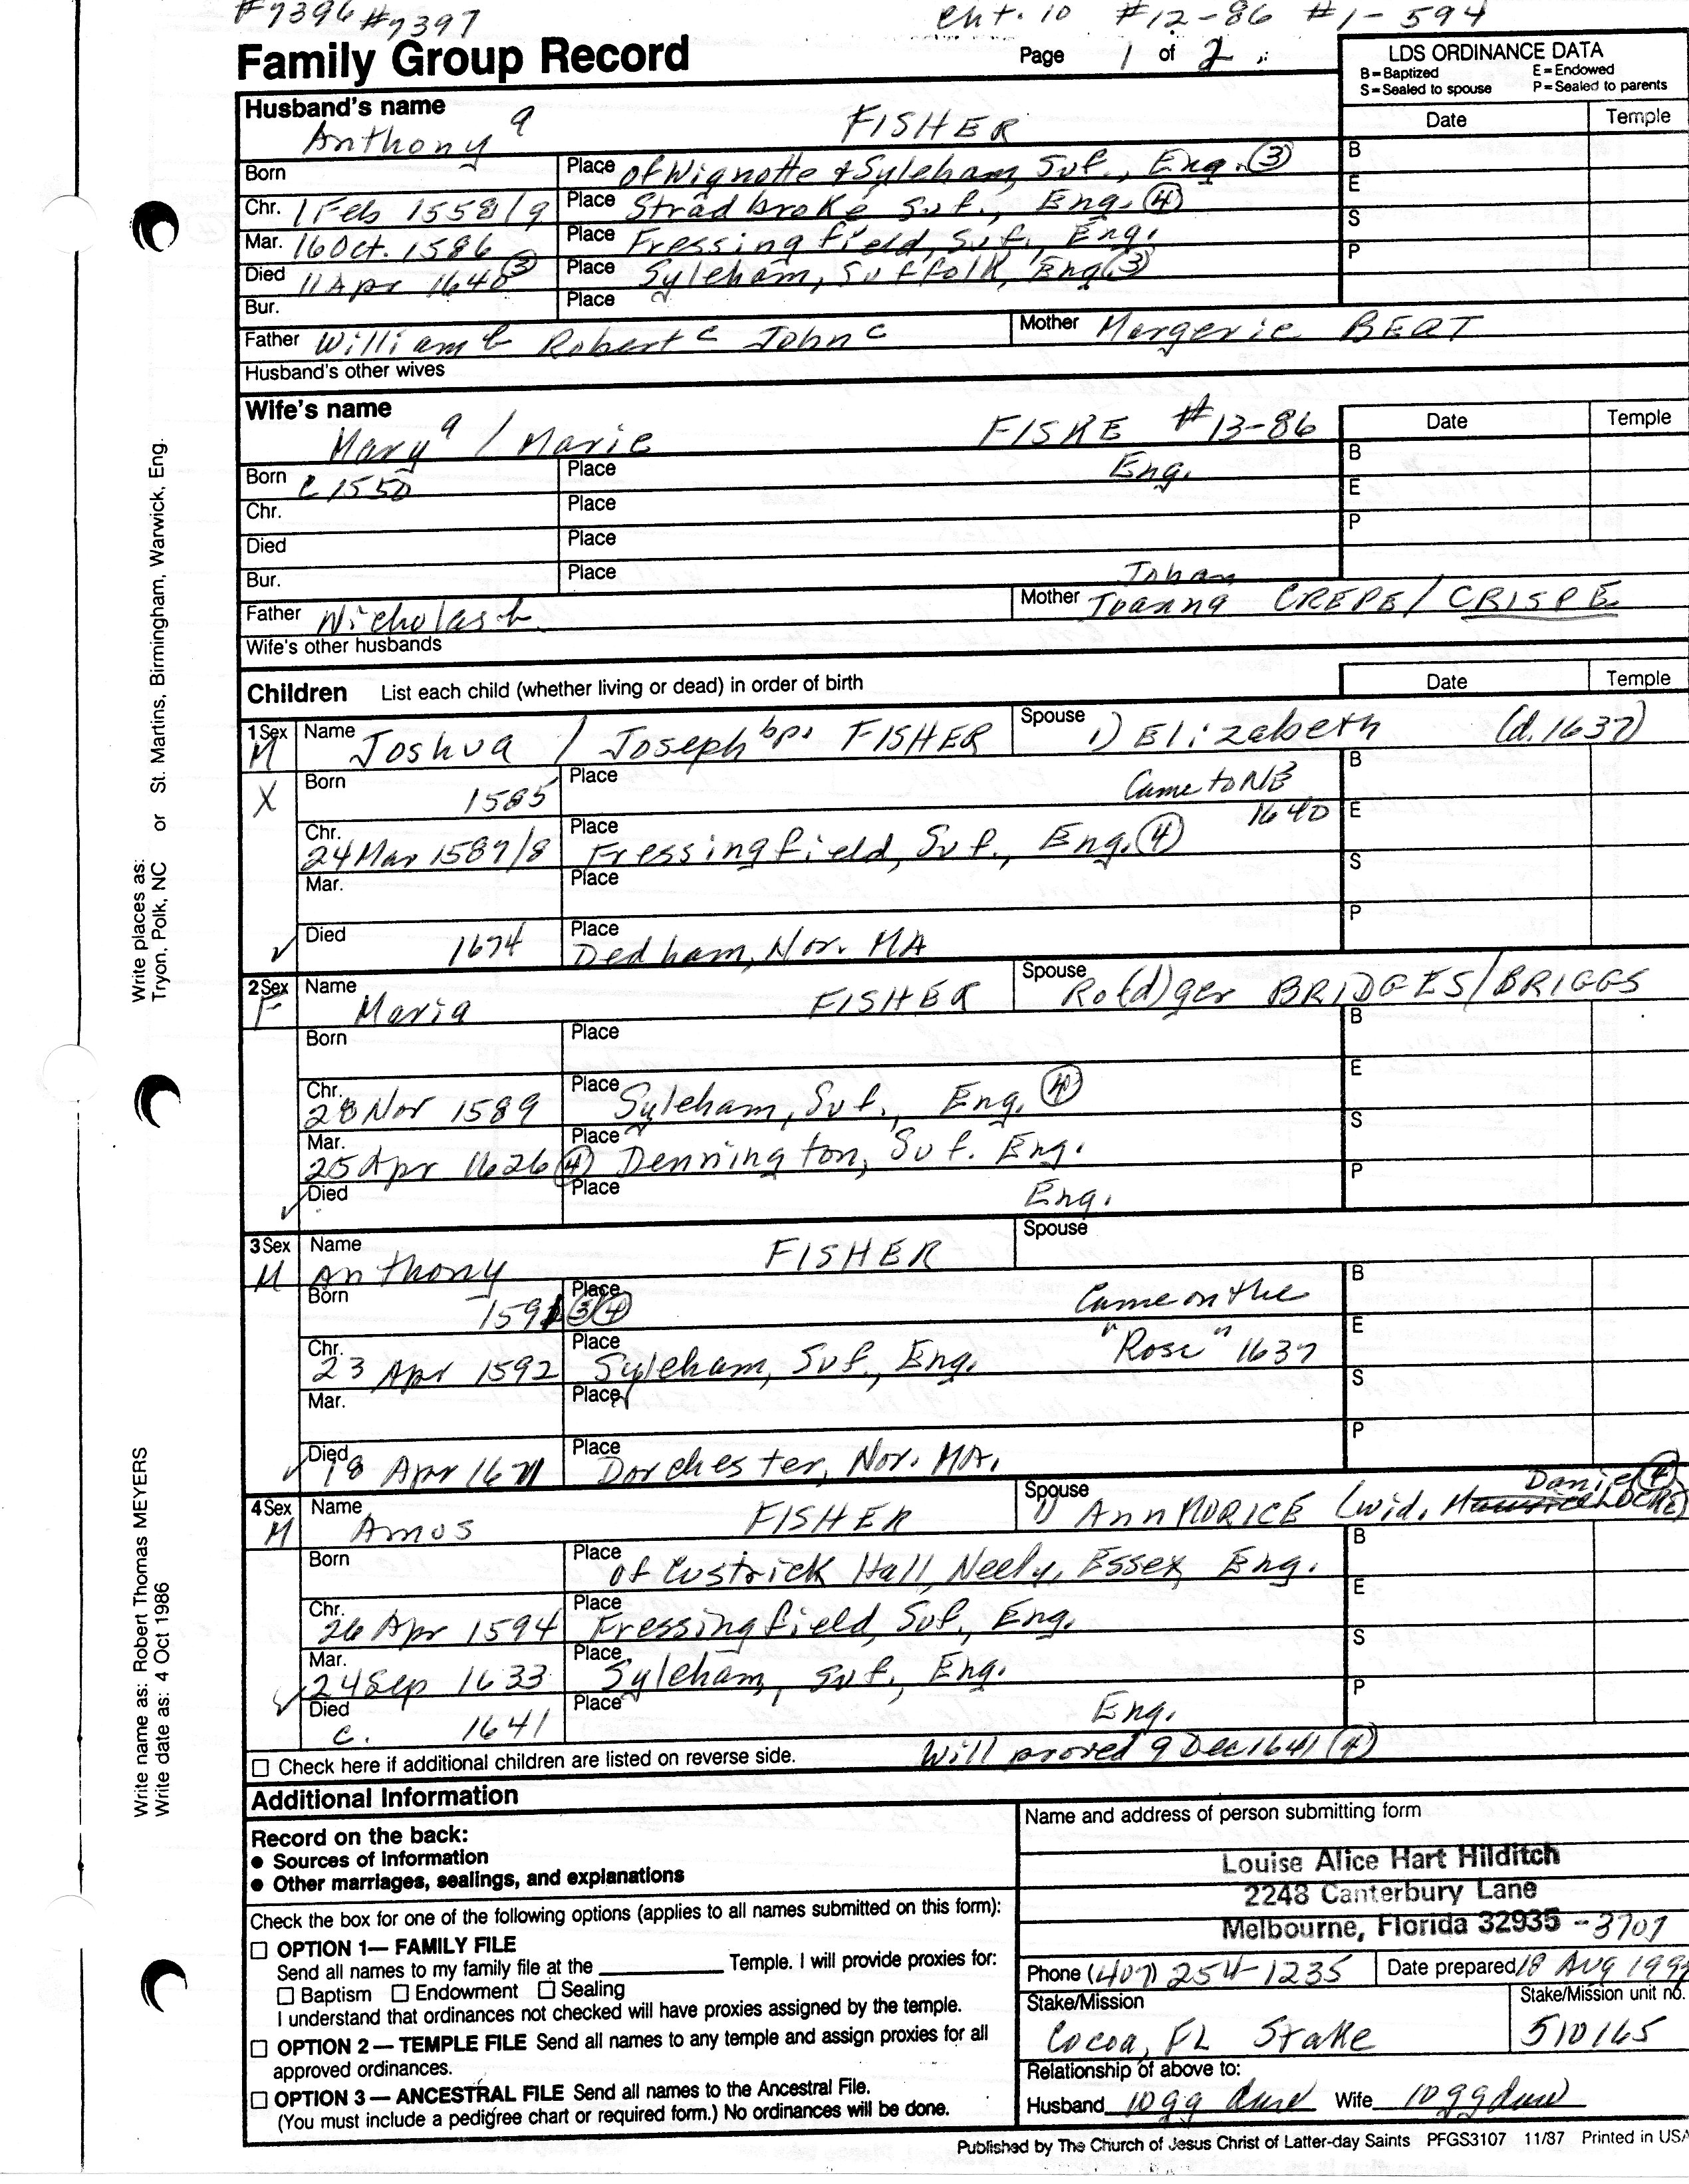 #7396 #7397 cht. 10 #12-86 #1-594
Family Group Record
Page 1 of 2
LDS ORDINANCE DATA
B=Baptized E=Endowed
S=Sealed to spouse P=Sealed to parents
Husband's name
Anthony a FISHER
Date Temple
Born Place of Wignotte & Syleham, Suf., Eng. (3) B
E
Chr. 1 Feb 1558/9 Place Stradbroke Suf., Eng. (4)
S
Mar. 16 Oct. 1586 Place Fressingfield, Suf., Eng.
P
Died 11 Apr 1640 (3) Place Syleham, Suffolk, Eng (3)
Bur. Place
Father William b Robert c John c Mother Margerie BERT
Husband's other wives
Wife's name
Mary a / Marie FISKE #13-86
Date Temple
Born c 1550 Place Eng. B
Chr. Place E
Died Place P
Bur. Place
Johan
Father Nicholas b. Mother Joanna CREPE/CRISPE
Wife's other husbands
Children List each child (whether living or dead) in order of birth Date Temple
1 Sex Name Joshua / Joseph bp. FISHER Spouse 1) Elizabeth (d. 1637)
M
X Born 1585 Place Came to NE B
1640 E
Chr. 24 Mar 1587/8 Place Fressingfield, Suf., Eng. (4)
Mar. Place S
Died 1674 Place Dedham, Nor. MA P
2 Sex Name Maria FISHER Spouse Ro(d)ger BRIDGES/BRIGGS
F
Born Place B
E
Chr. 28 Nov 1589 Place Syleham, Suf., Eng. (4)
Mar. 25 Apr 1626 (4) Place Dennington, Suf. Eng. S
Died Place Eng. P
3 Sex Name Anthony FISHER Spouse
M
Born 1591 (3)(4) Place Came on the B
"Rose" 1637 E
Chr. 23 Apr 1592 Place Syleham, Suf., Eng.
Mar. Place S
Died 18 Apr 1671 Place Dorchester, Nor. MA. P
Daniel (4)
4 Sex Name Amos FISHER Spouse 1) Ann MORICE (wid. LOCKE)
M
Born Place of Custrick Hall, Neely, Essex, Eng. B
E
Chr. 26 Apr 1594 Place Fressingfield, Suf., Eng.
S
Mar. 24 Sep 1633 Place Syleham, Suf., Eng.
P
Died c. 1641 Place Eng.
Check here if additional children are listed on reverse side. Will proved 9 Dec 1641 (4)
Additional Information
Record on the back:
• Sources of information
• Other marriages, sealings, and explanations
Check the box for one of the following options (applies to all names submitted on this form):
OPTION 1— FAMILY FILE
Send all names to my family file at the Temple. I will provide proxies for:
Baptism Endowment Sealing
I understand that ordinances not checked will have proxies assigned by the temple.
OPTION 2— TEMPLE FILE Send all names to any temple and assign proxies for all
approved ordinances.
OPTION 3— ANCESTRAL FILE Send all names to the Ancestral File.
(You must include a pedigree chart or required form.) No ordinances will be done.
Name and address of person submitting form
Louise Alice Hart Hilditch
2248 Canterbury Lane
Melbourne, Florida 32935 -3707
Phone (407) 254-1235 Date prepared 18 AUG 199
Stake/Mission Stake/Mission unit no.
Cocoa, FL Stake 510165
Relationship of above to:
Husband 10 gg Wife 10 gg
Published by The Church of Jesus Christ of Latter-day Saints PFGS3107 11/87 Printed in USA
Write places as: Tryon, Polk, NC or St. Martins, Birmingham, Warwick, Eng.
Write name as: Robert Thomas MEYERS
Write date as: 4 Oct 1986